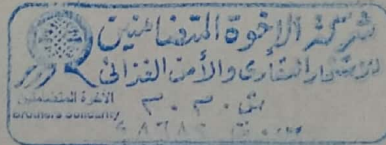 شركة الإخوة المتضامنين
للإستثمار العقارى والأمن الغذائى
الأخوة المتضامنين
Brothers Solidarity